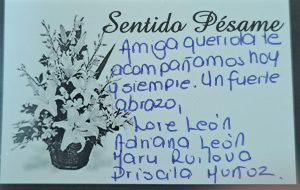 Sentido Pésame
Amiga querida te
acompañamos hoy
y siempre. Un fuerte
abrazo,
Lore León
Adriana León
Maru Ruilova
Priscila Muñoz.